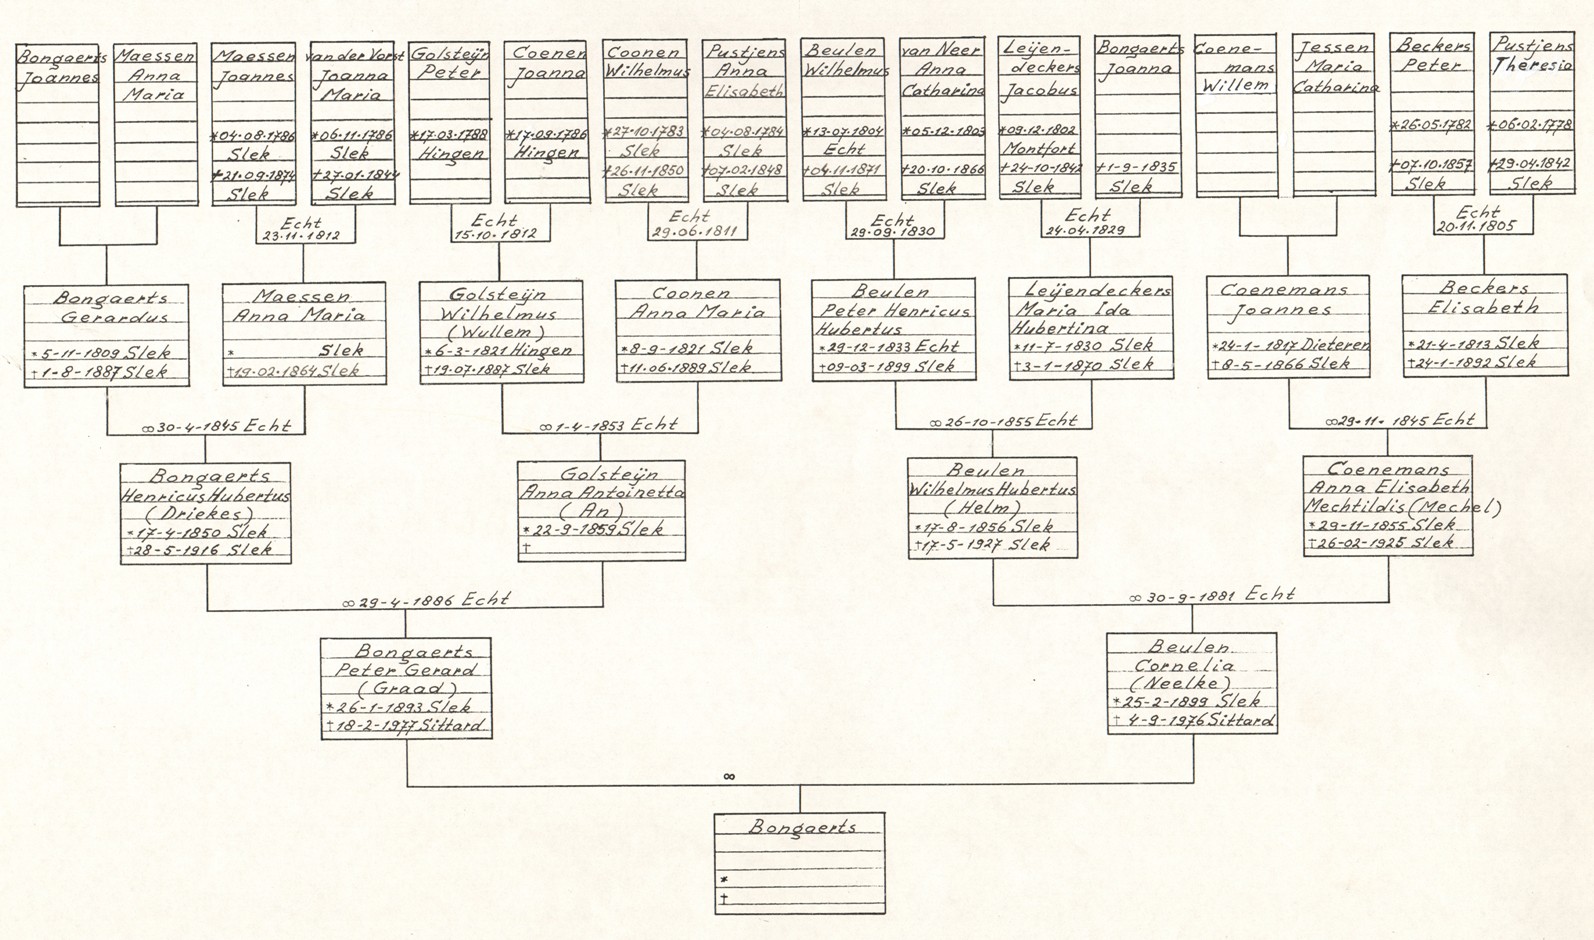 Bongaerts
Joannes
Maessen
Anna
Maria
Maessen
Joannes
*04.08.1786
Slek
†21.09.1874
Slek
van der Vorst
Joanna
Maria
*06.11.1786
Slek
†27.01.1844
Slek
Golsteÿn
Peter
*17.03.1788
Hingen
Coenen
Joanna
*17.09.1786
Hingen
Coonen
Wilhelmus
*27.10.1783
Slek
†26.11.1850
Slek
Pustjens
Anna
Elisabeth
*04.08.1784
Slek
†07.02.1848
Slek
Beulen
Wilhelmus
*13.07.1804
Echt
†04.11.1871
Slek
van Neer
Anna
Catharina
*05.12.1803
†20.10.1866
Slek
Leÿen-
deckers
Jacobus
*09.12.1802
Montfort
†24-10-1842
Slek
Bongaerts
Joanna
†1-9-1835
Slek
Coene-
mans
Willem
Jessen
Maria
Catharina
Beckers
Peter
*26.05.1782
†07.10.1857
Slek
Pustjens
Theresia
*06.02.1778
†29.04.1842
Slek
Echt
23.11.1812
Echt
15.10.1812
Echt
29.06.1811
Echt
29.09.1830
Echt
24.04.1829
Echt
20.11.1805
Bongaerts
Gerardus
*5-11-1809 Slek
†1-8-1887 Slek
Maessen
Anna Maria
* Slek
†19.02.1864 Slek
Golsteÿn
Wilhelmus
(Wullem)
*6-3-1821 Hingen
†19.07.1887 Slek
Coonen
Anna Maria
*8-9-1821 Slek
†11.06.1889 Slek
Beulen
Peter Henricus
Hubertus
*29-12-1833 Echt
†09-03-1899 Slek
Leÿendeckers
Maria Ida
Hubertina
*11-7-1830 Slek
†3-1-1870 Slek
Coenemans
Joannes
*24-1-1817 Dieteren
†8-5-1866 Slek
Beckers
Elisabeth
*21-4-1813 Slek
†24-1-1892 Slek
∞30-4-1845 Echt
∞1-4-1853 Echt
∞26-10-1855 Echt
∞29.11.1845 Echt
Bongaerts
Henricus Hubertus
(Driekes)
*17-4-1850 Slek
†28-5-1916 Slek
Golsteÿn
Anna Antoinetta
(An)
*22-9-1859 Slek
†
Beulen
Wilhelmus Hubertus
(Helm)
*17-8-1856 Slek
†17-5-1927 Slek
Coenemans
Anna Elisabeth
Mechtildis (Mechel)
*29-11-1855 Slek
†26-02-1925 Slek
∞29-4-1886 Echt
∞30-9-1881 Echt
Bongaerts
Peter Gerard
(Graad)
*26-1-1893 Slek
†18-2-1977 Sittard
Beulen
Cornelia
(Neelke)
*25-2-1899 Slek
†4-9-1976 Sittard
∞
Bongaerts
*
†